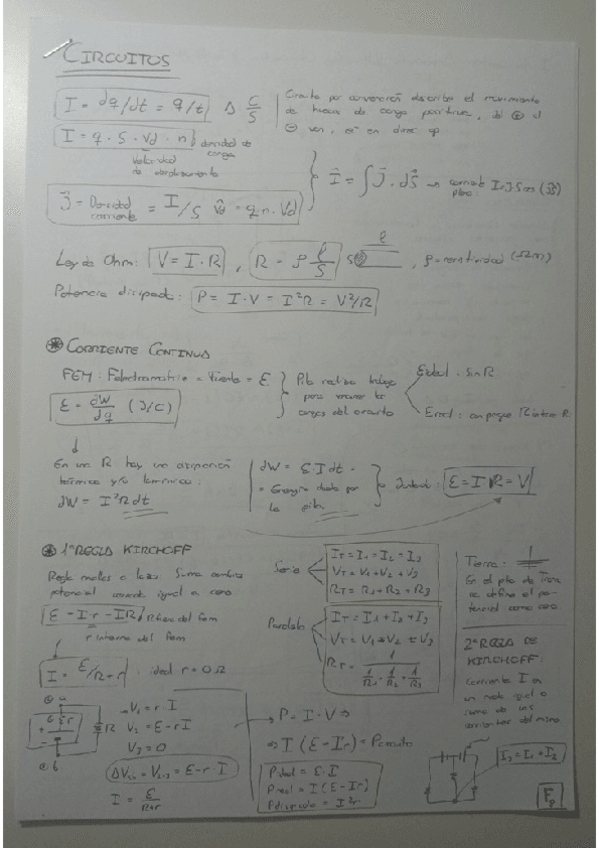 CIRCUITOS
I = dq/dt = q/t) Δ C/S
Circuito por convención describe el movimiento
de huecos de carga positiva, del ⊕ al
⊖ van, e⁻ en direc op.
I = q · S · Vd · n} densidad de carga
Velocidad
de
J = Densidad corriente = I/S Vd = q n · Vd
I = ∫ J · dS → corriente I = J S cos (β)
Ley de Ohm: V = I · R , R = ρ l/S S l , ρ = resistividad (Ωm)
Potencia disipada: P = I · V = I²R = V²/R
CORRIENTE CONTINUA
FEM: Fuerza = ε } Pila realiza trabajo
para mover las
cargas del circuito
Eideal · sin R
Ereal: con R interna R
ε = dW/dq (J/C)
En una R hay una disipación
térmica y/o lumínica:
dW = I²R dt
dW = ε I dt =
= Energía dada por
la pila
ε = I R = V
1ª REGLA KIRCHOFF
Regla mallas o lazos: Suma cambios
potencial igual a cero
ε - I·r - IR} R fem
r interna del fem
I = ε/R+r · ideal r = 0 Ω
Serie
IT = I1 = I2 = I3
VT = V1 + V2 + V3
RT = R1 + R2 + R3
Paralelo
IT = I1 + I2 + I3
VT = V1 = V2 = V3
RT = 1 / 1/R1 + 1/R2 + 1/R3
Tierra:
En el pto de Tierra
se define el po-
tencial como cero
2ª REGLA DE
KIRCHOFF:
Corriente I en
un nodo igual a
suma de las
corrientes del mismo
I3 = I1 + I2
a
ε r
+
-
R
b
V1 = r · I
V2 = ε - r I
V3 = 0
ΔV = V2-3 = ε - r · I
I = ε/R+r
→ P = I · V ⇒
⇒ I (ε - Ir) = Pcircuito
Pideal = ε · I
Preal = I (ε - Ir)
Pdisipada = I²r
Fp